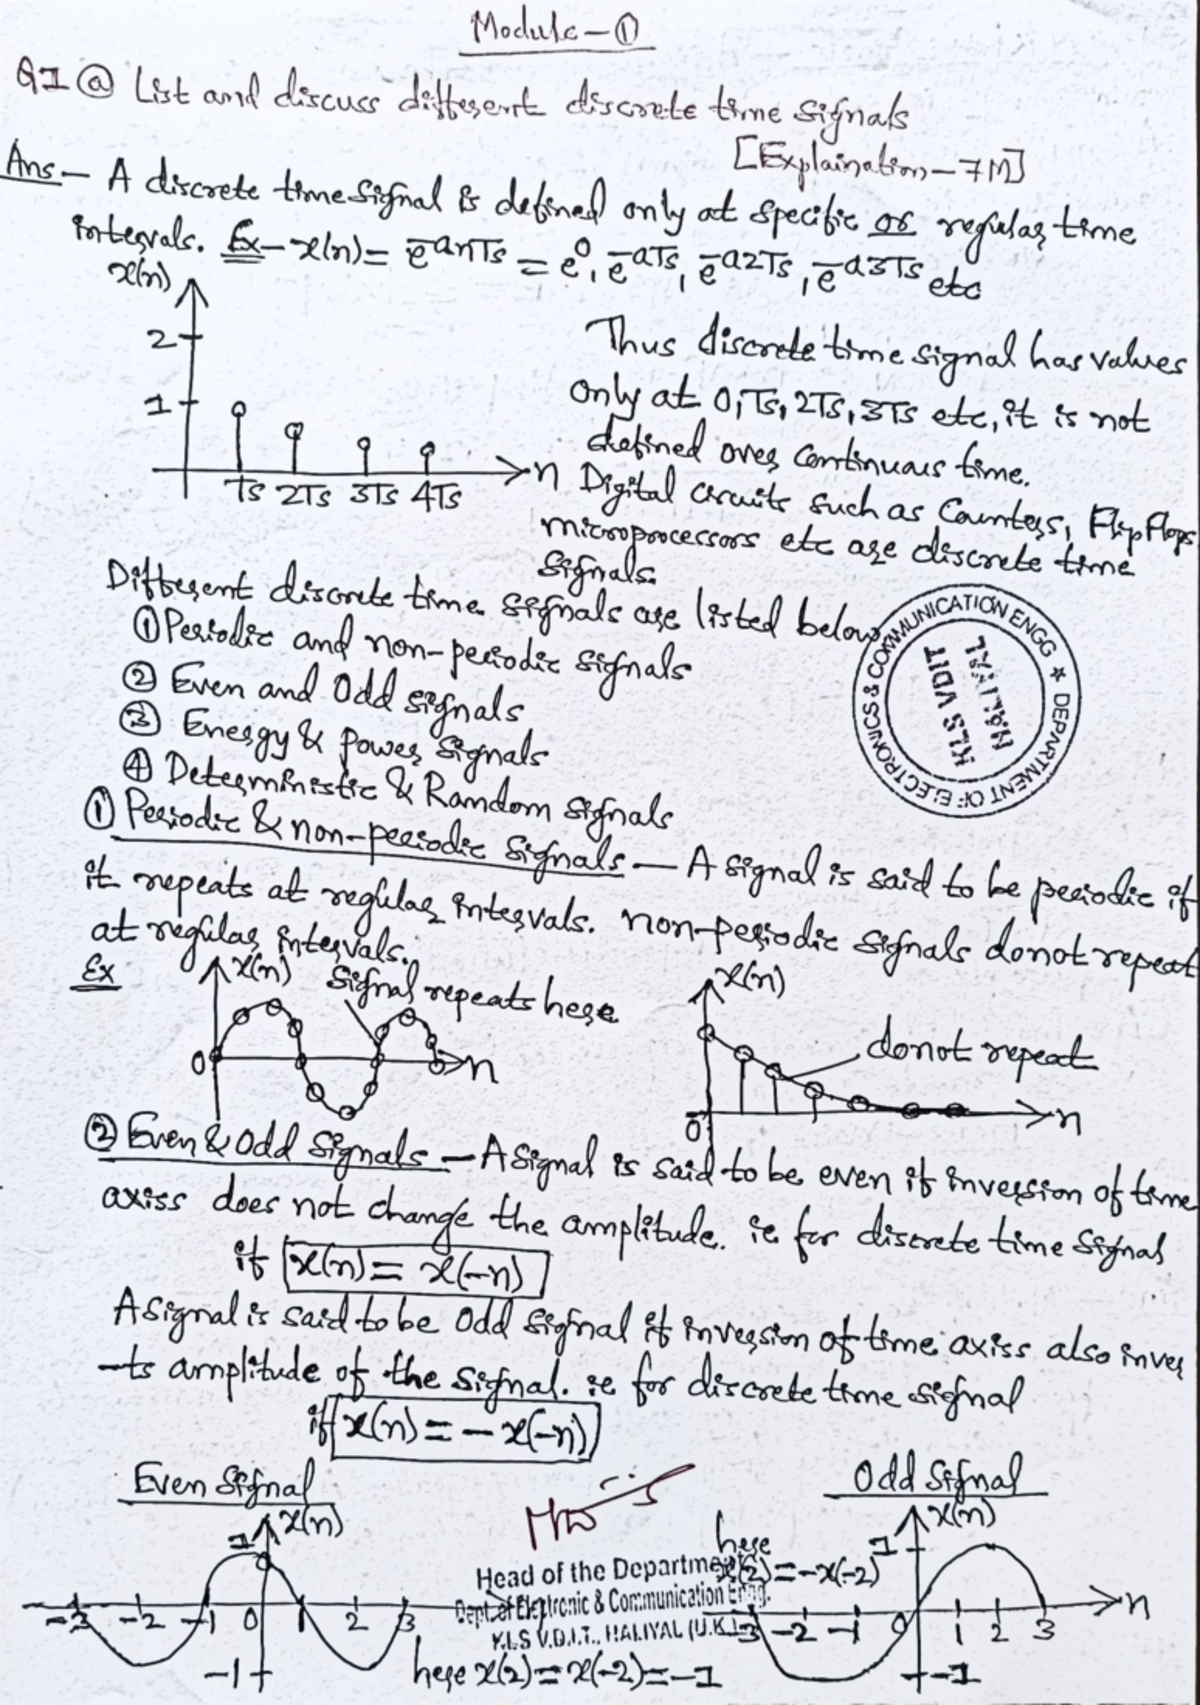 Module-①
Q1 ⓐ List and discuss different discrete time signals
[Explaination-7M]
Ans- A discrete time signal is defined only at specific or regular time
intervals. Ex- x(n) = e^-anTs = e^0, e^-aTs, e^-a2Ts, e^-a3Ts etc
x(n)
2
1
Ts 2Ts 3Ts 4Ts
n
Thus discrete time signal has values
only at 0, Ts, 2Ts, 3Ts etc, it is not
defined over continuous time.
Digital circuits such as Counters, FlipFlops
microprocessors etc are discrete time
signals.
Different discrete time signals are listed below
① Periodic and non-periodic signals
② Even and Odd signals
③ Energy & power signals
④ Deterministic & Random signals
DEPARTMENT OF ELECTRONICS & COMMUNICATION ENGG ★
KLS VDIT
HALIYAL
① Periodic & non-periodic signals - A signal is said to be periodic if
it repeats at regular intervals. non-periodic signals donot repeat
at regular intervals.
Ex
x(n) signal repeats here
0
n
x(n)
donot repeat
0
n
② Even & Odd signals - A signal is said to be even if inversion of time
axiss does not change the amplitude. ie for discrete time signal
if x(n) = x(-n)
A signal is said to be odd signal if inversion of time axiss also inver
-ts amplitude of the signal. ie for discrete time signal
if x(n) = - x(-n)
Even Signal
1 x(n)
-3 -2 -1 0 1 2 3
-1
here x(2) = x(-2) = -1
Head of the Department
Dept. of Electronic & Communication Engg.
K.L.S V.D.I.T., HALIYAL (U.K.)
Odd Signal
here
x(2) = -x(-2)
1 x(n)
-3 -2 -1 0 1 2 3
n
-1